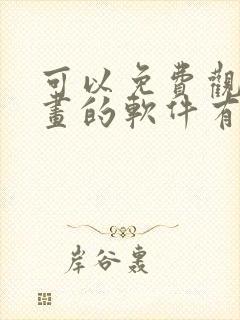 可以免費觀
畫的軟件有
岸谷轟